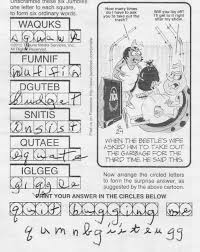 Unscramble these six Jumbles
one letter to each square,
to form six ordinary words.
WAQUKS
squawk
FUMNIF
muffin
DGUTEB
budget
SNITIS
insist
QUTAEE
equate
IGLGEG
giggle
How many times
do I have to ask
you to take out the
trash?
Will you lay off?
I'll get to it right
after my show.
WHEN THE BEETLE'S WIFE
ASKED HIM TO TAKE OUT
THE GARBAGE FOR THE
THIRD TIME, HE SAID THIS.
Now arrange the circled letters
to form the surprise answer, as
suggested by the above cartoon.
PRINT YOUR ANSWER IN THE CIRCLES BELOW
quit bugging me